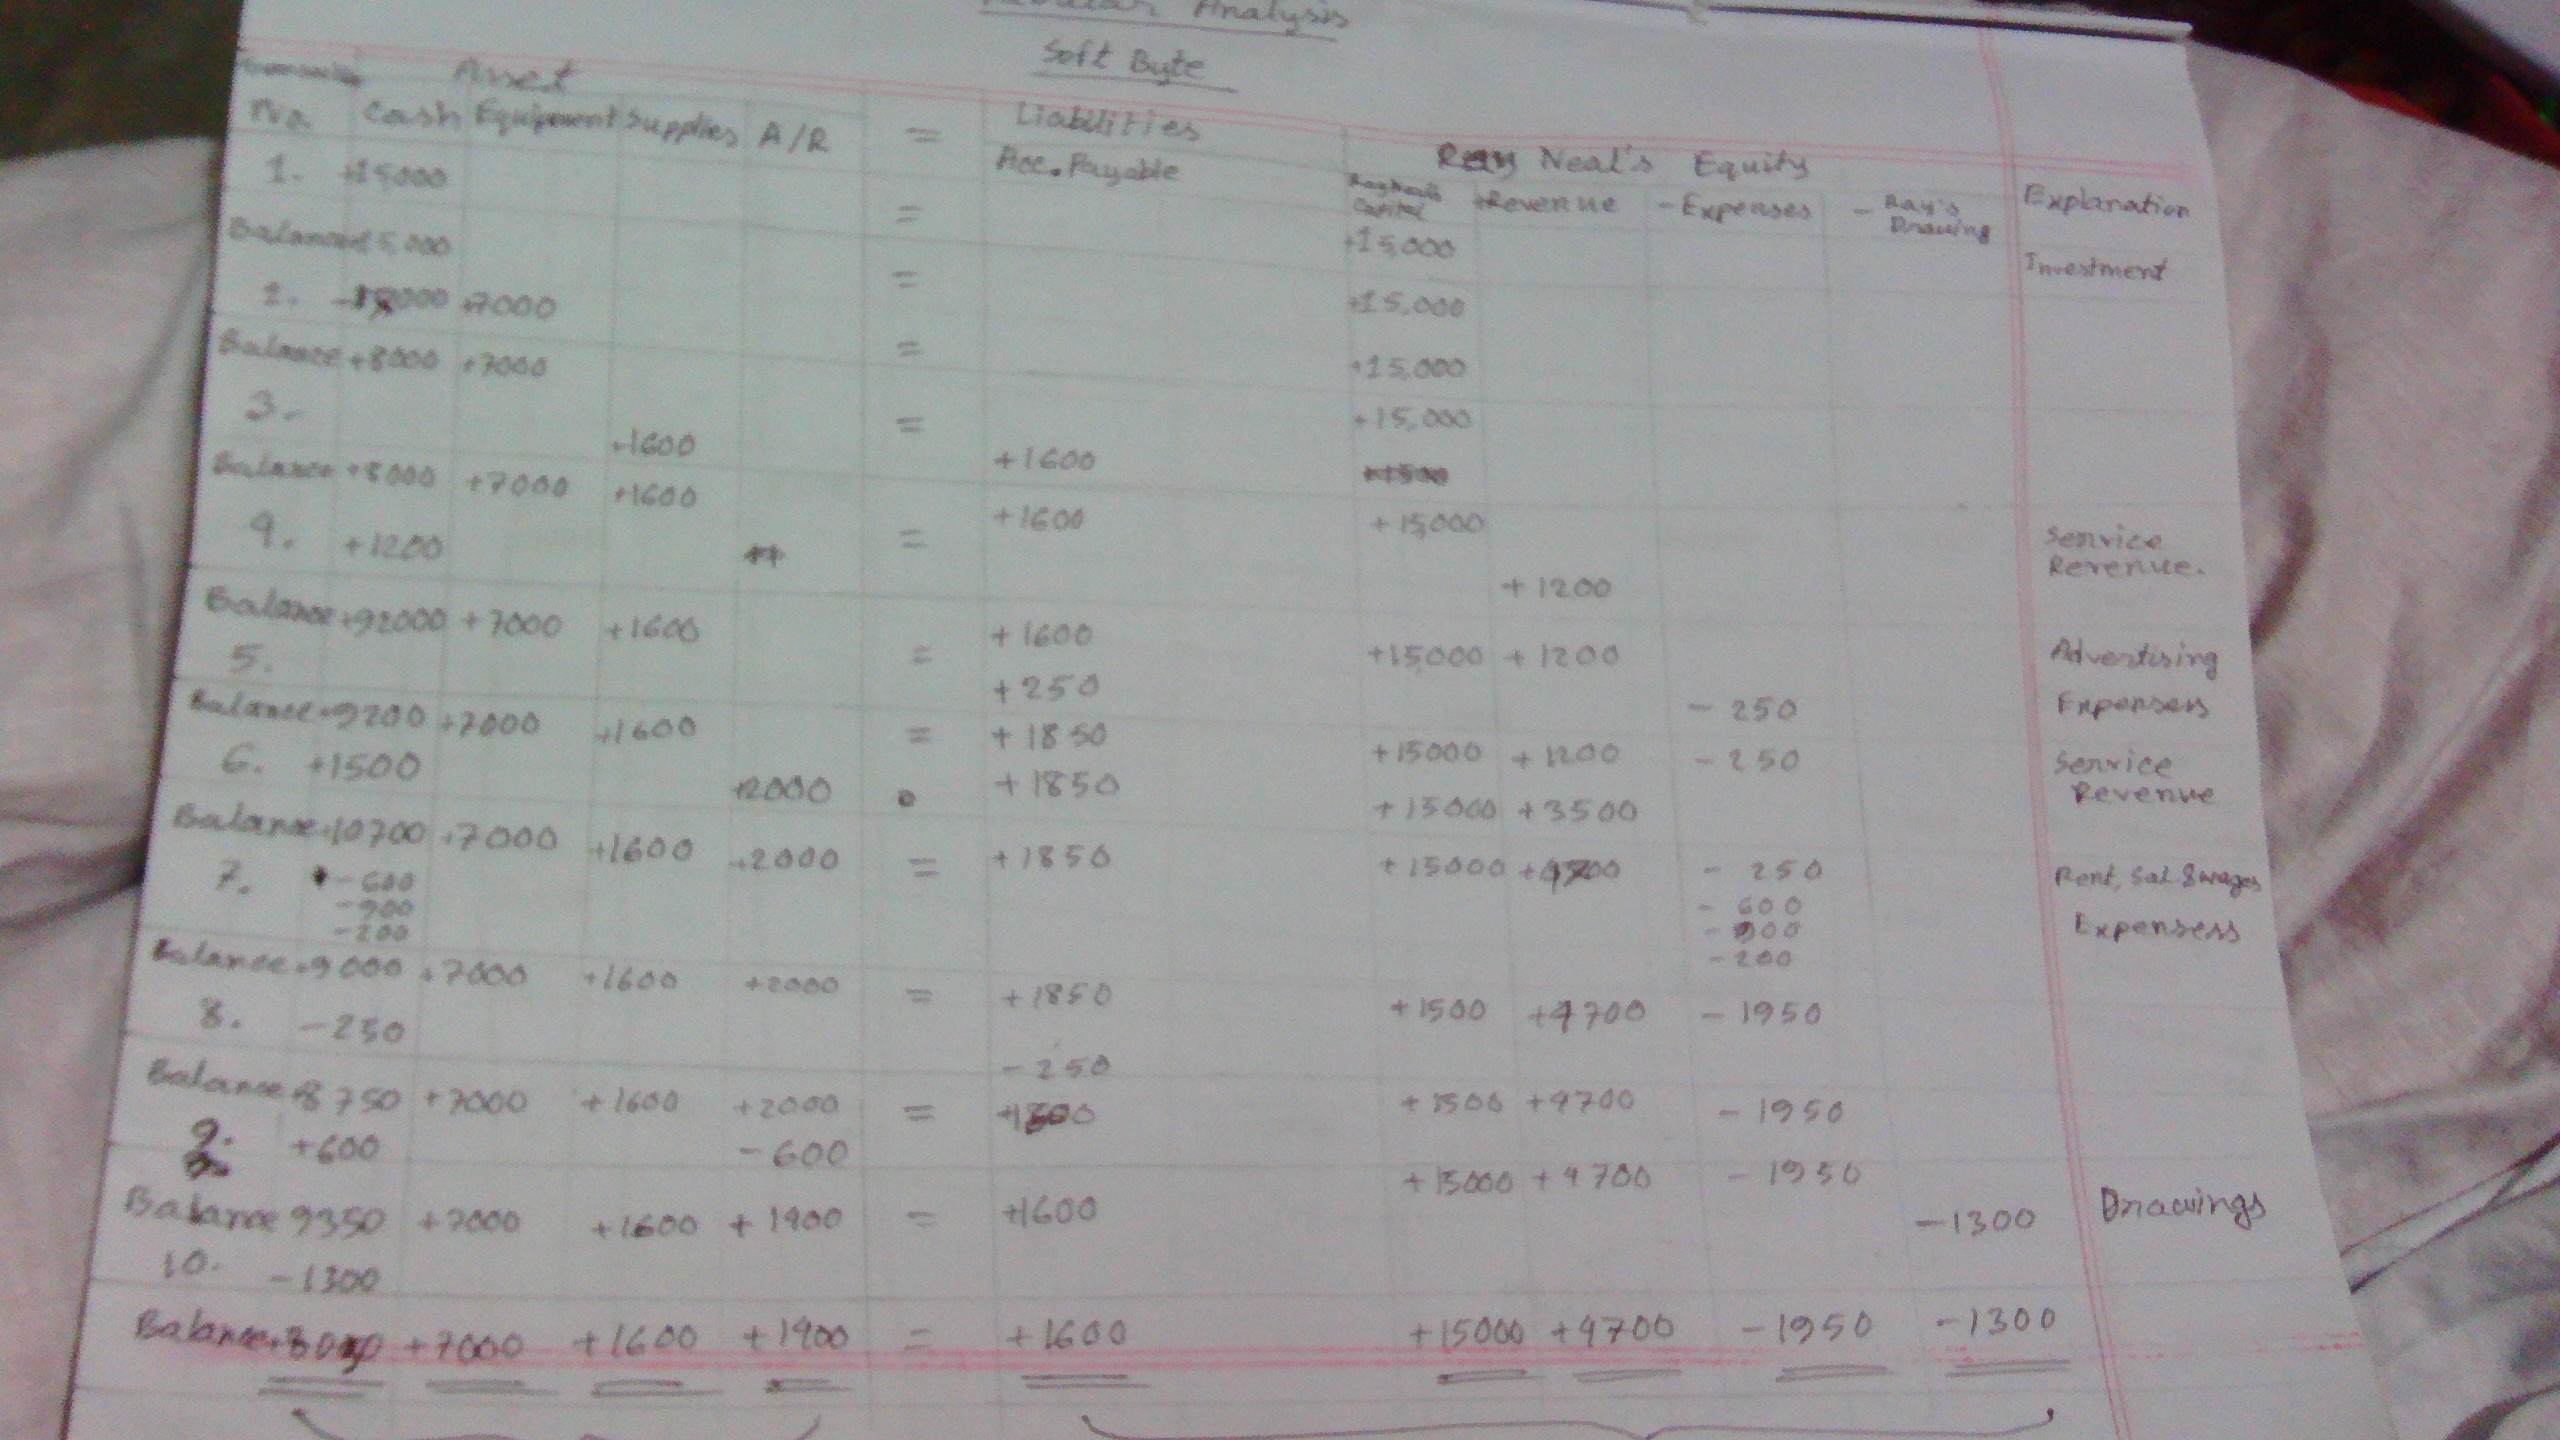 Analysis
Soft Byte
Asset
No. Cash Equipment Supplies A/R = Liabilities
Acc. Payable
Ray Neal's Equity
Capital +Revenue - Expenses - Ray's Drawing Explanation
1. +15000 = +15,000 Investment
Balance 15,000 = +15,000
2. +7000 = +15,000
Balance +8000 +7000 = +15,000
3. +1600 +1600
Balance +8000 +7000 +1600 = +1600 +15,000
4. +1200 +1200 Service Revenue.
Balance +92000 +7000 +1600 = +1600 +15000 +1200
5. +250 - 250 Advertising Expensess
Balance +9200 +7000 +1600 = +1850 +15000 +1200 - 250
6. +1500 +2000 +1850 +15000 +3500 Service Revenue
Balance +10700 +7000 +1600 +2000 = +1850 +15000 - 250
7. -600 - 600 Rent, Sal. & wages
-900 - 900 Expensess
-200 - 200
Balance +9000 +7000 +1600 +2000 = +1850 +1500 +4700 - 1950
8. -250 - 250
Balance +8750 +7000 +1600 +2000 = +1500 +4700 - 1950
9. +600 -600 +15000 +4700 - 1950
Balance 9350 +7000 +1600 +1400 = +1600
10. -1300 -1300 Drawings
Balance +7000 +1600 +1400 = +1600 +15000 +4700 -1950 -1300